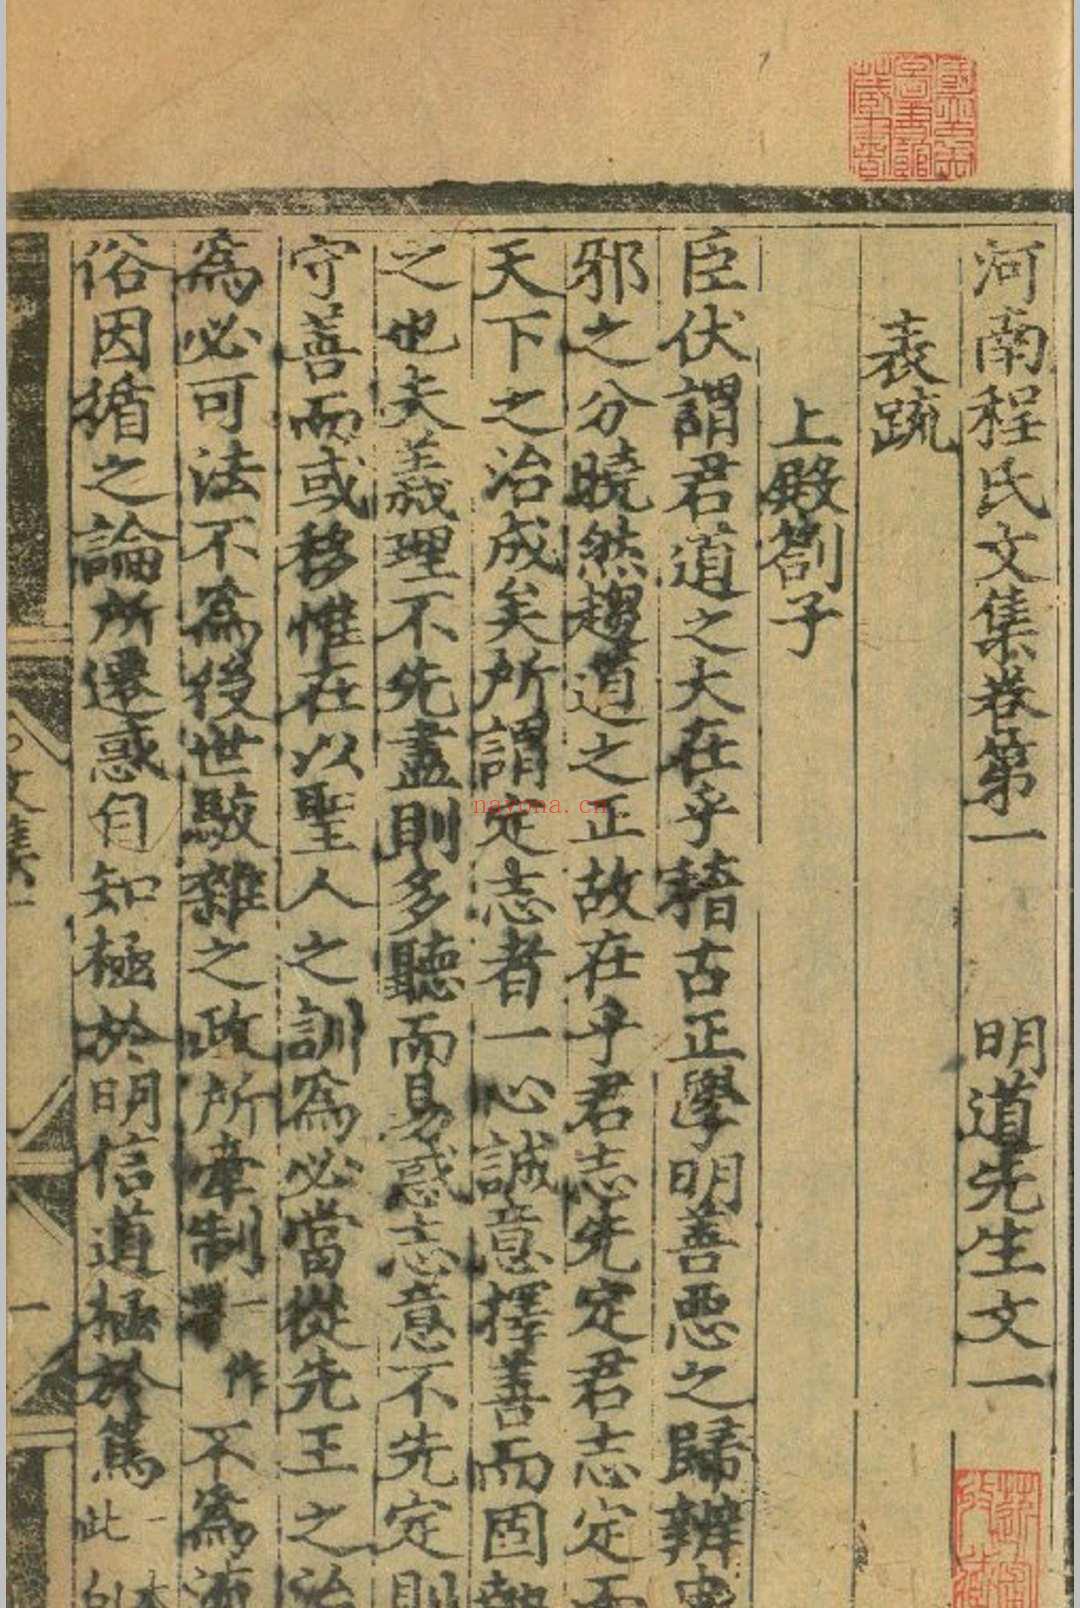 河南程氏文集卷第一　明道先生文一
表疏
上殿劄子
臣伏謂君道之大在乎稽古正學明善惡之歸辨忠
邪之分曉然趨道之正故在乎君志先定君志定而
天下之治成矣所謂定志者一心誠意擇善而固執
之也夫義理不先盡則多聽而易惑志意不先定則
守善而或移惟在以聖人之訓為必當從先王之治
為必可法不為後世駁雜之政所牽制一作不為流
俗因循之論所遷惑自知極於明信道極於篤一本此
文集一
一
nayona.cn